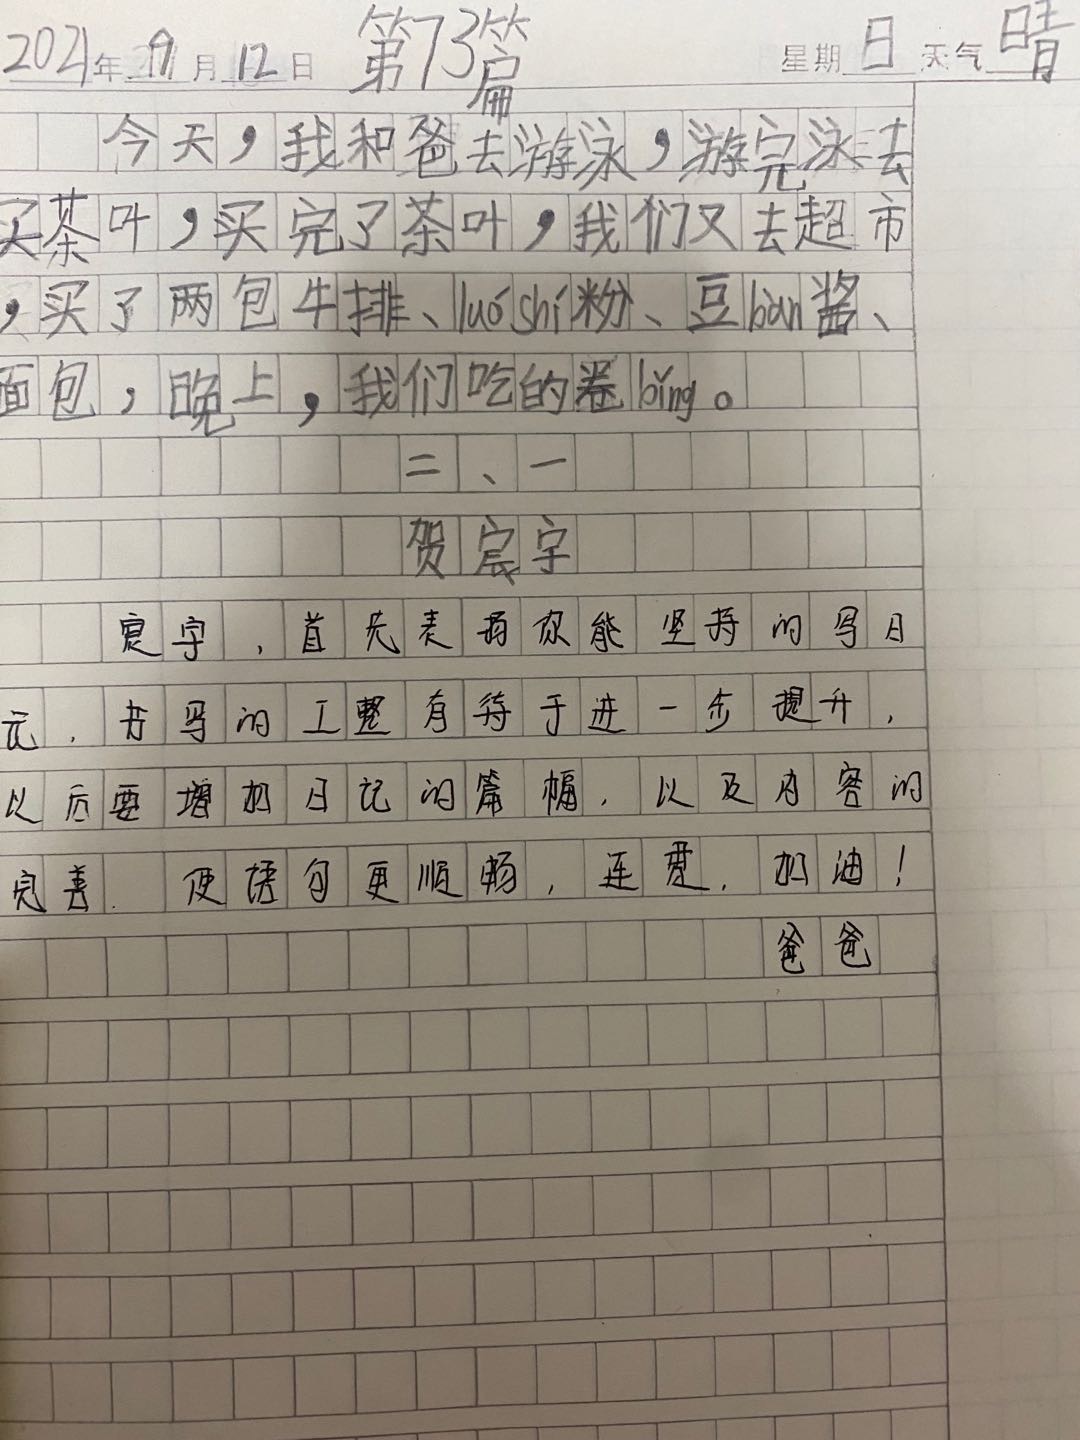 2021年9月12日 第73篇 星期日 天气晴
今天，我和爸去游泳，游完泳去
买茶叶，买完了茶叶，我们又去超市
，买了两包牛排、luó shí粉、豆bàn酱、
面包，晚上，我们吃的卷bǐng。
二、一
贺宸宇
宸宇，首先表扬你能坚持的写日
记，书写的工整有待于进一步提升，
以后要增加日记的篇幅，以及内容的
完善．使语句更顺畅，连贯，加油！
爸爸